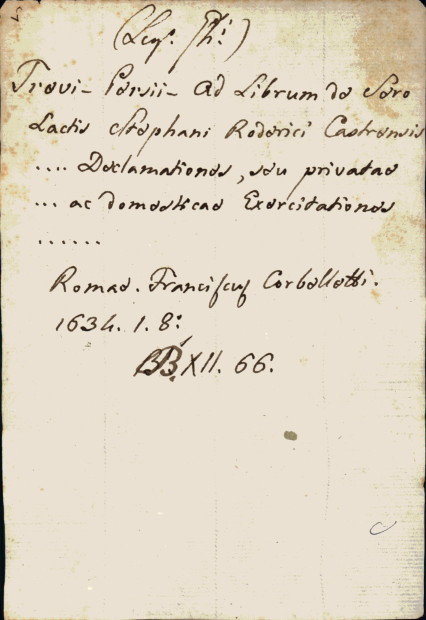 (Leg. Ph:)
Trevi- Persii- Ad Librum de Sero
Lactis Stephani Roderici Castrensis
.... Declamationes, seu privatae
... ac domesticae Exercitationes
......
Romae. Franciscus Corbelletti.
1634. 1. 8:
BB. XII. 66.